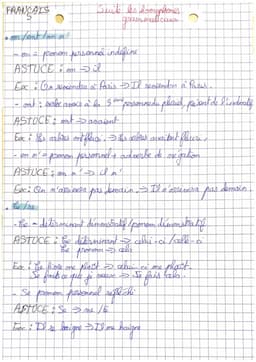 FRANÇAIS
Suite les homophones
grammaticaux
• on/ont/on n'
- on = pronom personnel indéfini
ASTUCE : on → il
Ex : On rencontre à Paris → Il rencontre à Paris.
- ont : verbe avoir à la 3ème personne du pluriel, présent de l'indicatif
ASTUCE : ont → avaient
Ex : Les arbres ont fleuri. → Les arbres avaient fleuri.
- on n' = pronom personnel + adverbe de négation
ASTUCE : on n' → il n'
Ex : On n'arrivera pas demain. → Il n'arrivera pas demain.
• Ce/se
- Ce = déterminant démonstratif/pronom démonstratif
ASTUCE : Ce déterminant → celui-ci/celle-ci
Ce pronom → cela
Ex : Ce livre me plaît → celui-ci me plaît.
- Se pronom personnel réfléchi
ASTUCE : Se → me/te
Ex : Il se baigne → Il me baigne